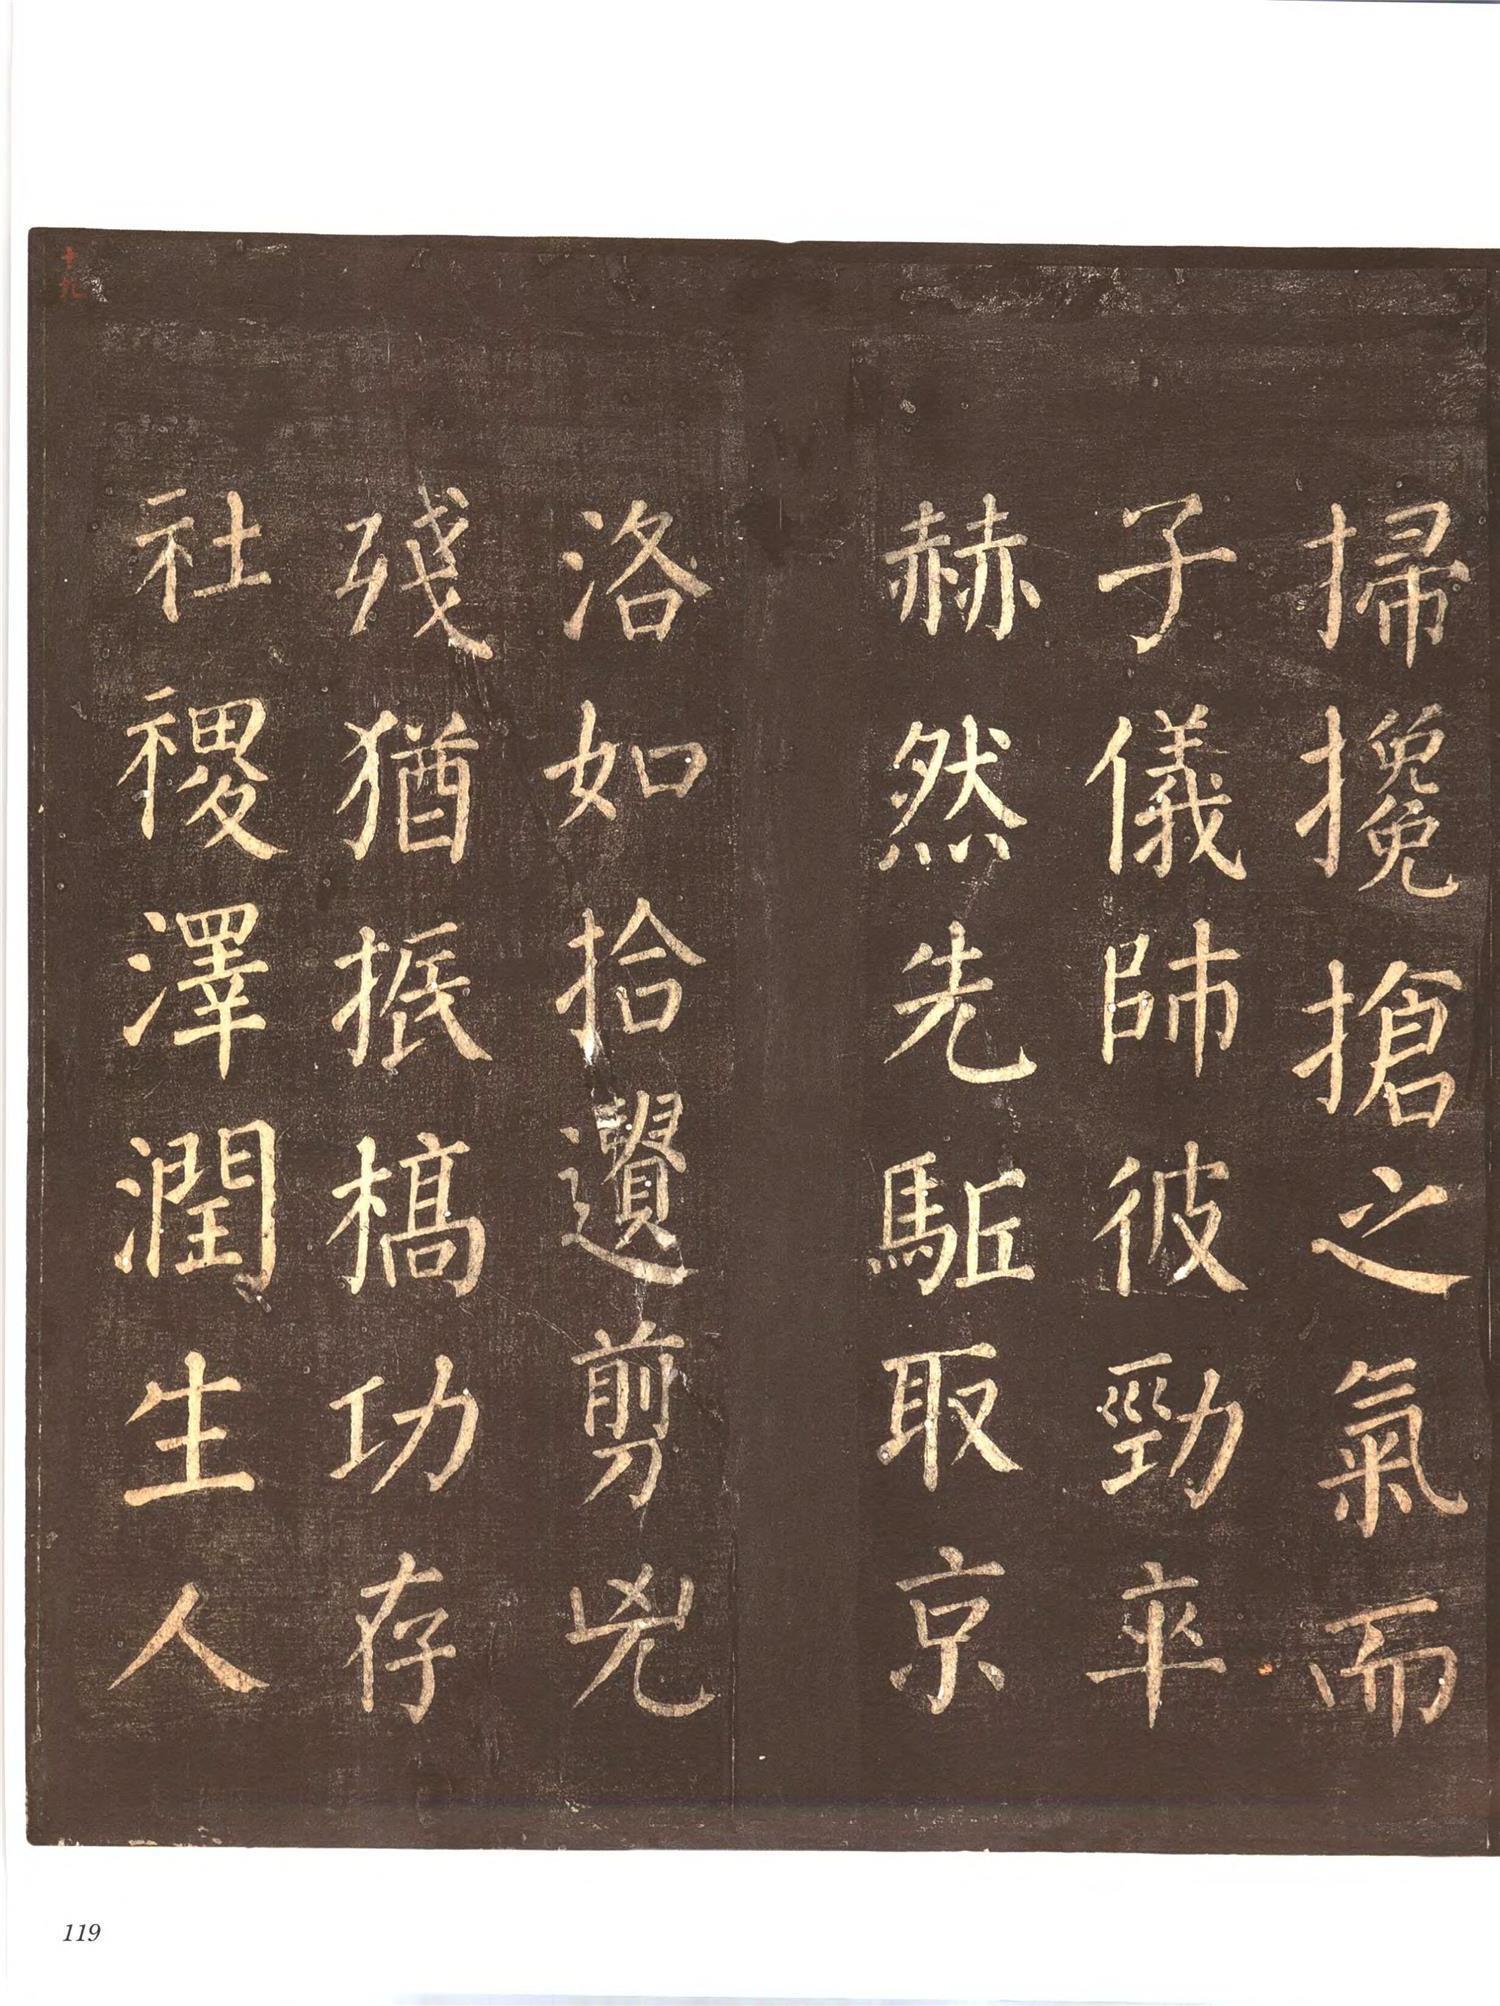 掃攙搶之氣而
子儀師彼勁卒
赫然先駈取京
洛如拾遺剪兇
殘猶振槁功存
社稷澤潤生人
十九
119